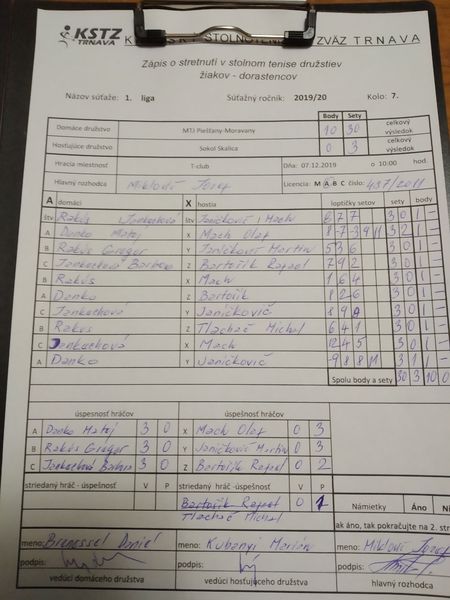 KSTZ
TRNAVA
K STOLNOTENI ZVÄZ TRNAVA
Zápis o stretnutí v stolnom tenise družstiev
žiakov - dorastencov
Názov súťaže: 1. liga Súťažný ročník: 2019/20 Kolo: 7.
Body Sety
Domáce družstvo MTJ Piešťany-Moravany 10 30 celkový výsledok
Hosťujúce družstvo Sokol Skalica 0 3 celkový výsledok
Hracia miestnosť T-club Dňa: 07.12.2019 o 10:00 hod.
Hlavný rozhodca Mikloš Jozef Licencia: M A B C číslo: 437/2011
A domáci X hostia loptičky setov sety body
štv Rakús Jankechová štv Janičkovič, Mach 6 7 7 3 0 1 -
A Danko Matej X Mach Olaf 8 -7 -3 9 11 3 2 1 -
B Rakús Gregor Y Janičkovič Martin 5 3 6 3 0 1 -
C Jankechová Barbora Z Bartošík Rafael 7 9 2 3 0 1 -
B Rakús X Mach 1 6 4 3 0 1 -
A Danko Z Bartošík 8 2 6 3 0 1 -
C Jankechová Y Janičkovič 8 9 9 3 0 1 -
B Rakus Z Tlachač Michal 6 4 1 3 0 1 -
C Jankechová X Mach 12 4 5 3 0 1 -
A Danko Y Janičkovič -9 8 8 11 3 1 1 -
Spolu body a sety 30 3 10 0
úspesnosť hráčov úspešnosť hráčov
A Danko Matej 3 0 X Mach Olaf 0 3
B Rakús Gregor 3 0 Y Janičkovič Martin 0 3
C Jankechová Barbora 3 0 Z Bartošík Rafael 0 2
striedaný hráč - úspešnosť V P striedaný hráč -úspešnosť V P
Bartošík Rafael 0 1
Tlachač Michal
Námietky Áno
ak áno, tak pokračujte na 2. str
meno: Daniel meno: Kubányi Marián meno: Mikloš Jozef
podpis: podpis: podpis:
vedúci domáceho družstva vedúci hosťujúceho družstva hlavný rozhodca